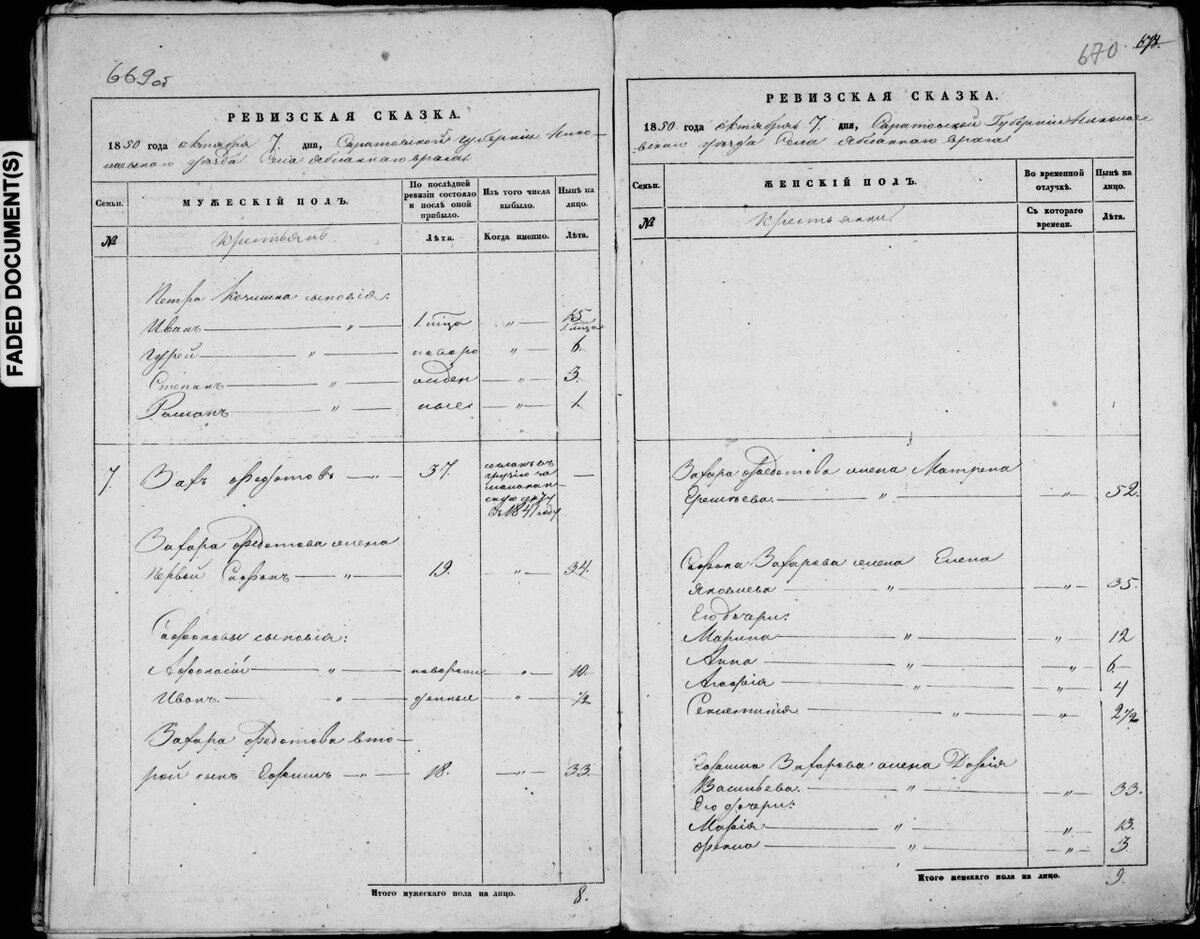 FADED DOCUMENT(S)
669об
РЕВИЗСКАЯ СКАЗКА.
1850 года октября 7. дня, Саратовской губернии Нико-
лаевскаго уѣзда Села Яблоннаго врага.
Семьи.
МУЖЕСКІЙ ПОЛЪ.
По послѣдней
ревизіи состояло
и послѣ оной
прибыло.
Изъ того числа
выбыло.
Нынѣ на
лицо.
№
крестьянъ
Лѣта.
Когда именно.
Лѣта.
Петра сыновія:
Иванъ — „ — 1. мца „ 15
Гурей — „ — новоро „ 6.
Степанъ — „ — „ 3.
Романъ — „ — „ 1.
7. Зах. Федотовъ — „ — 37 —
въ 1847 году
Захара Федотова
первой Сафронъ — „ — 19. „ 34.
Сафроновы сыновія:
Афонасій — „ — новорож „ 10.
Иванъ. — „ — денные „ 1/2
Захара Федотова вто-
рой сынъ Ефимъ — „ — 18. — „ — 33.
Итого мужескаго пола на лицо. 8.
670
РЕВИЗСКАЯ СКАЗКА.
1850 года октября 7. дня, Саратовской Губерніи Никола-
евскаго уѣзда Села Яблоннаго врага.
Семьи.
ЖЕНСКІЙ ПОЛЪ.
Во временной
отлучкѣ.
Нынѣ на
лицо.
№
крестьянки.
Съ котораго
времени.
Лѣта.
Захара Федотова жена Матрена
— „ — „ — 52.
Сафрона Захарова жена Елена
Яковлева — „ — „ — 35.
Его дочери:
Марина — „ — „ — 12
Анна — „ — „ — 6.
Агафія — „ — „ — 4
— „ — „ — 2 1/2
Ефима Захарова жена Дарія
Васильева. — „ — „ — 33.
Его дочери:
Марія — „ — „ — 13.
Фекла — „ — „ — 3.
Итого женскаго пола на лицо. 9.